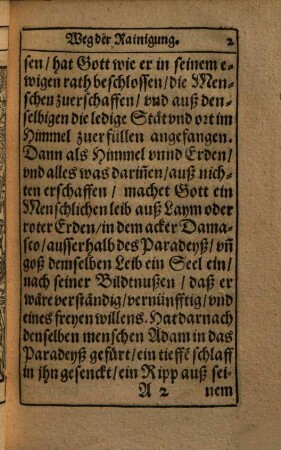 Weg der Rainigung. 2
sen / hat Gott wie er in seinem e-
wigen rath beschlossen / die Men-
schen zuerschaffen / vnd auß den-
selbigen die ledige Stät vnd ort im
Himmel zuerfüllen angefangen.
Dann als Himmel vnnd Erden /
vnd alles was dariñen / auß nich-
ten erschaffen / machet Gott ein
Menschlichen leib auß Laym oder
roter Erden / in dem acker Dama-
sco / ausserhalb des Paradeyß / vñ
goß demselben Leib ein Seel ein /
nach seiner Bildtnußen / daß er
wäre verständig / vernünfftig / vnd
eines freyen willens. Hat darnach
denselben menschen Adam in das
Paradeyß gefürt / ein tieffẽ schlaff
in jhn gesenckt / ein Ripp auß sei-
A 2 nem